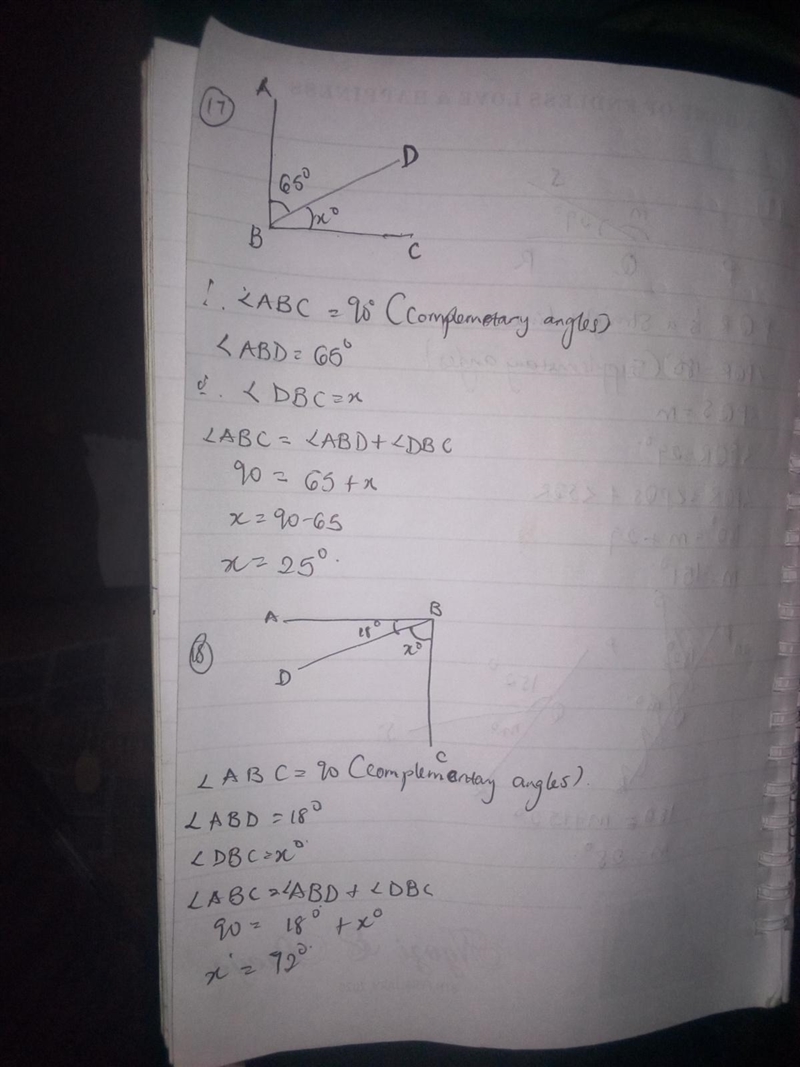 17
A
D
65°
x°
B
C
∴ ∠ABC = 90° (Complemetary angles)
∠ABD = 65°
∠DBC = x
∠ABC = ∠ABD + ∠DBC
90 = 65 + x
x = 90 - 65
x = 25°.
18
A
B
18°
x°
D
C
∠ABC = 90 (complementay angles).
∠ABD = 18°
∠DBC = x°
∠ABC = ∠ABD + ∠DBC
90 = 18° + x°
x = 72°